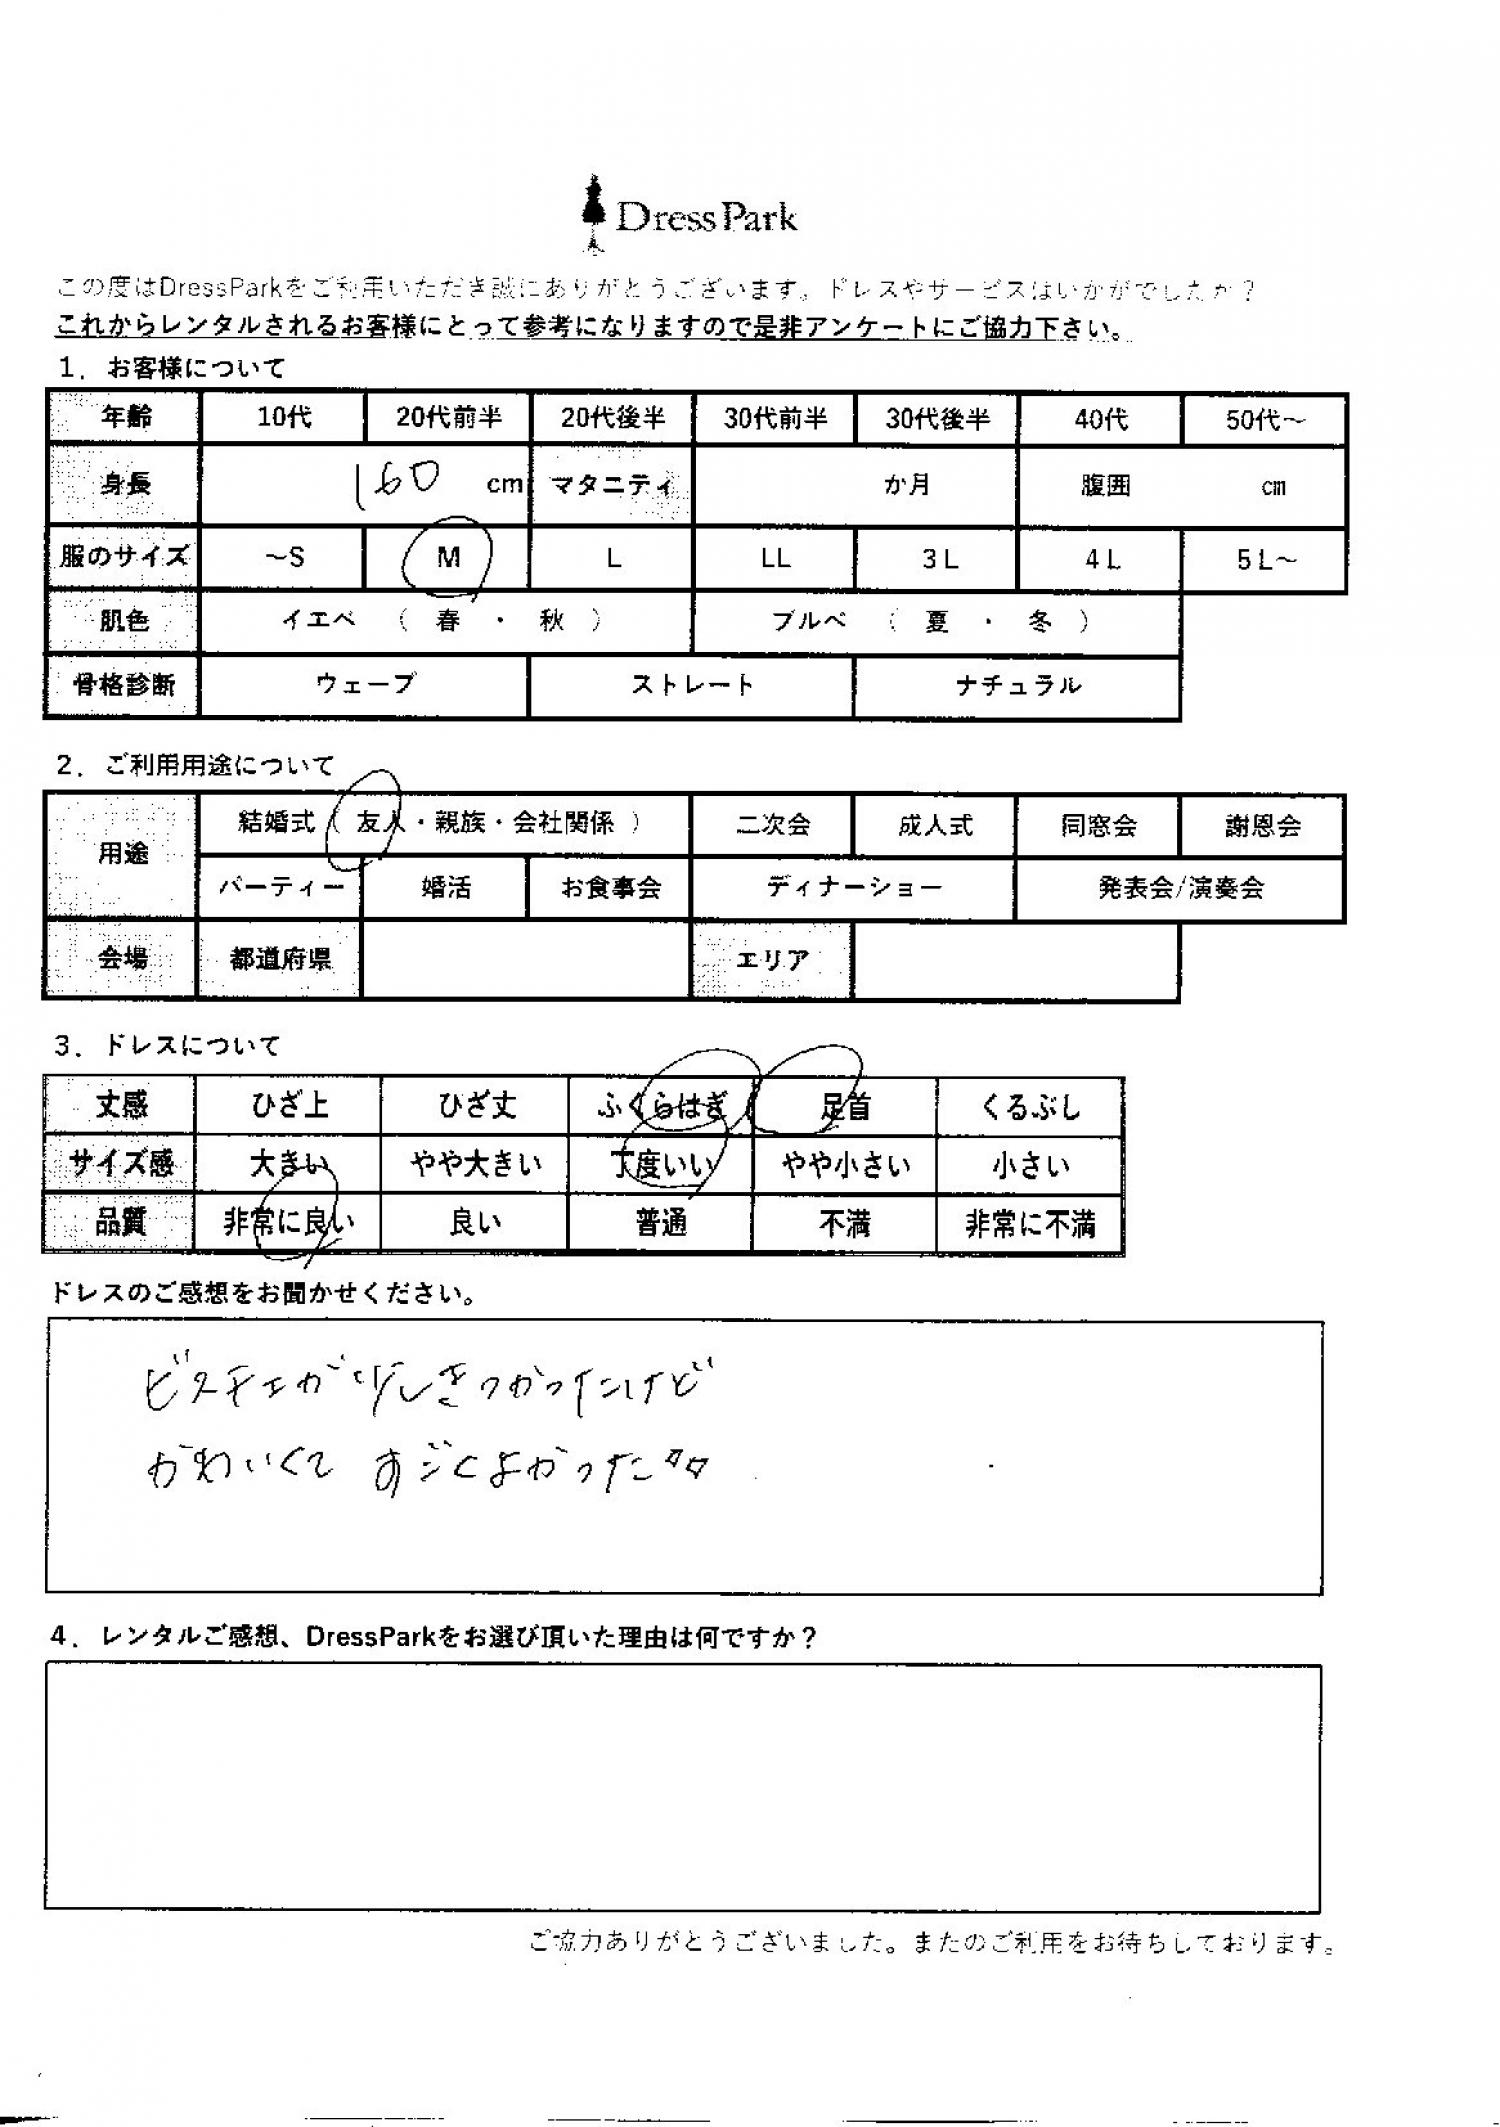 DressPark
この度はDressParkをご利用いただき誠にありがとうございます。ドレスやサービスはいかがでしたか？
これからレンタルされるお客様にとって参考になりますので是非アンケートにご協力下さい。
1．お客様について
年齢 10代 20代前半 20代後半 30代前半 30代後半 40代 50代～
身長 160 cm マタニティ か月 腹囲 cm
服のサイズ ～S M L LL 3L 4L 5L～
肌色 イエベ（ 春 ・ 秋 ） ブルベ（ 夏 ・ 冬 ）
骨格診断 ウェーブ ストレート ナチュラル
2．ご利用用途について
用途 結婚式（ 友人・親族・会社関係 ） 二次会 成人式 同窓会 謝恩会
パーティー 婚活 お食事会 ディナーショー 発表会/演奏会
会場 都道府県 エリア
3．ドレスについて
丈感 ひざ上 ひざ丈 ふくらはぎ 足首 くるぶし
サイズ感 大きい やや大きい 丁度いい やや小さい 小さい
品質 非常に良い 良い 普通 不満 非常に不満
ドレスのご感想をお聞かせください。
ビスチェが少しきつかったけど
かわいくて すごくよかった
4．レンタルご感想、DressParkをお選び頂いた理由は何ですか？
ご協力ありがとうございました。またのご利用をお待ちしております。